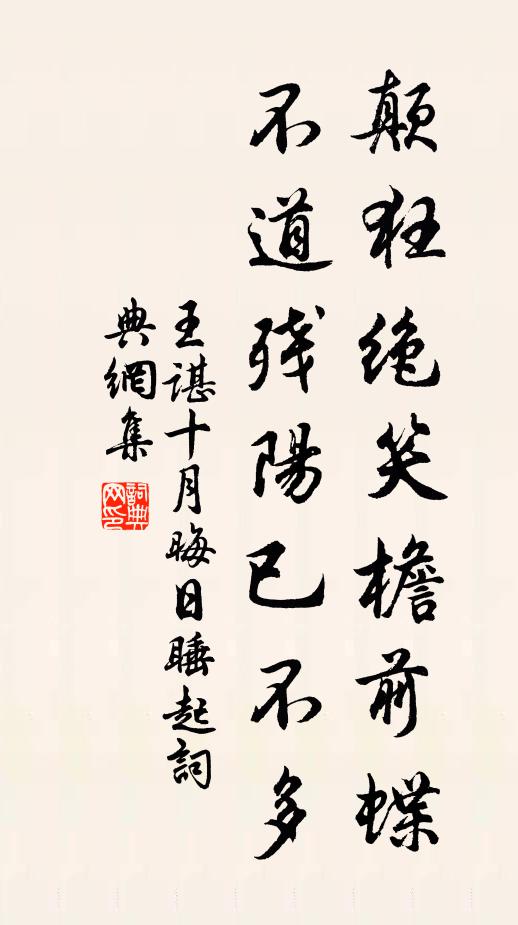 顛狂絶笑檐前蝶
不道残陽已不多
王諶十月晦日睡起詞
典網集
詞典
网印